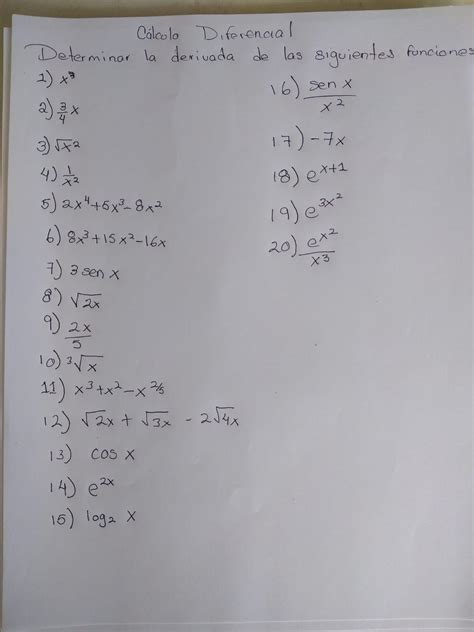 Cálculo Diferencial
Determinar la derivada de las siguientes funciones
1) x³
2) 3/4 x
3) √x²
4) 1/x²
5) 2x⁴+5x³-8x²
6) 8x³+15x²-16x
7) 3 sen x
8) √2x
9) 2x/5
10) ³√x
11) x³+x²-x^2/5
12) √2x + √3x - 2√4x
13) cos x
14) e^2x
15) log₂ x
16) sen x/x²
17) -7x
18) e^x+1
19) e^3x²
20) e^x²/x³